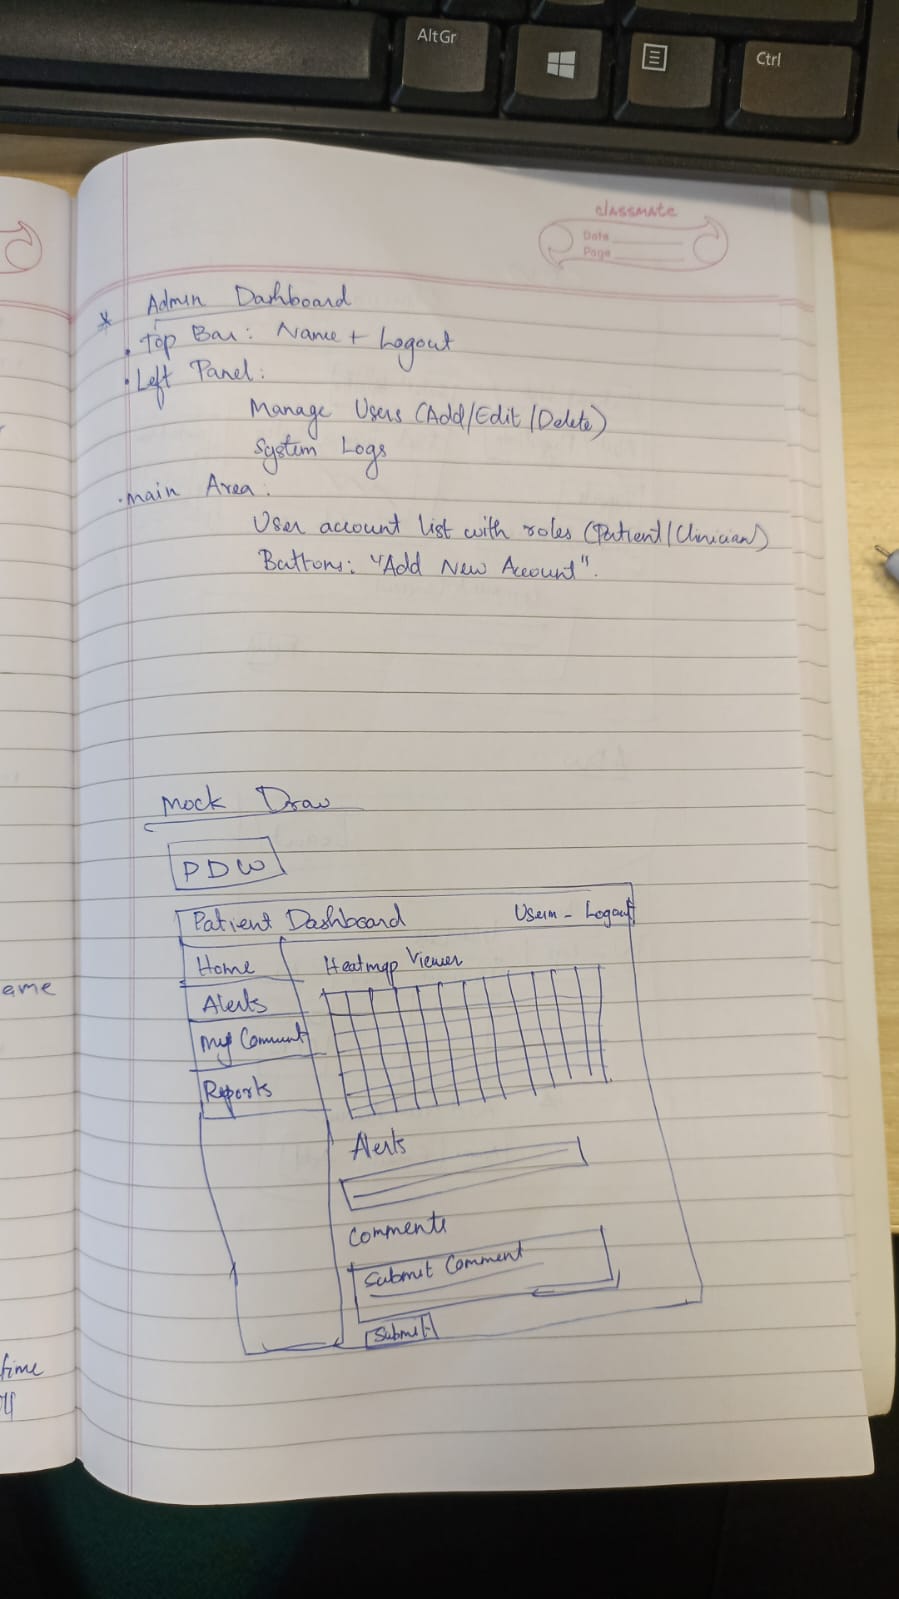 AltGr
Ctrl
classmate
Date
Page
* Admin Dashboard
• Top Bar: Name + Logout
• Left Panel:
Manage Users (Add/Edit/Delete)
System Logs
• main Area:
User account list with roles (Patient/Clinician)
Buttons: "Add New Account".
Mock Draw
PDW
Patient Dashboard Usern - Logout
Home Heatmap Viewer
Alerts
My Comment
Reports
Alerts
Comments
Submit Comment
Submit
ame
time